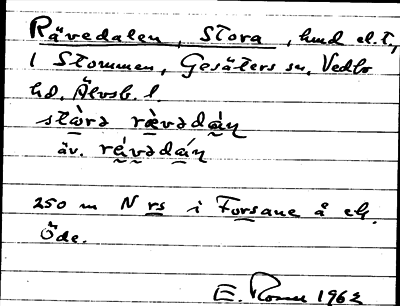 Rävedalen, Stora, hmd el.t.,
i Stommen, Gesäters sn, Vedbo
hd, Älvsb. l.
stωrə rävədàɳ
äv. rävədáɳ
250 m N rs i Forsane å ek.
Öde.
E. 1962